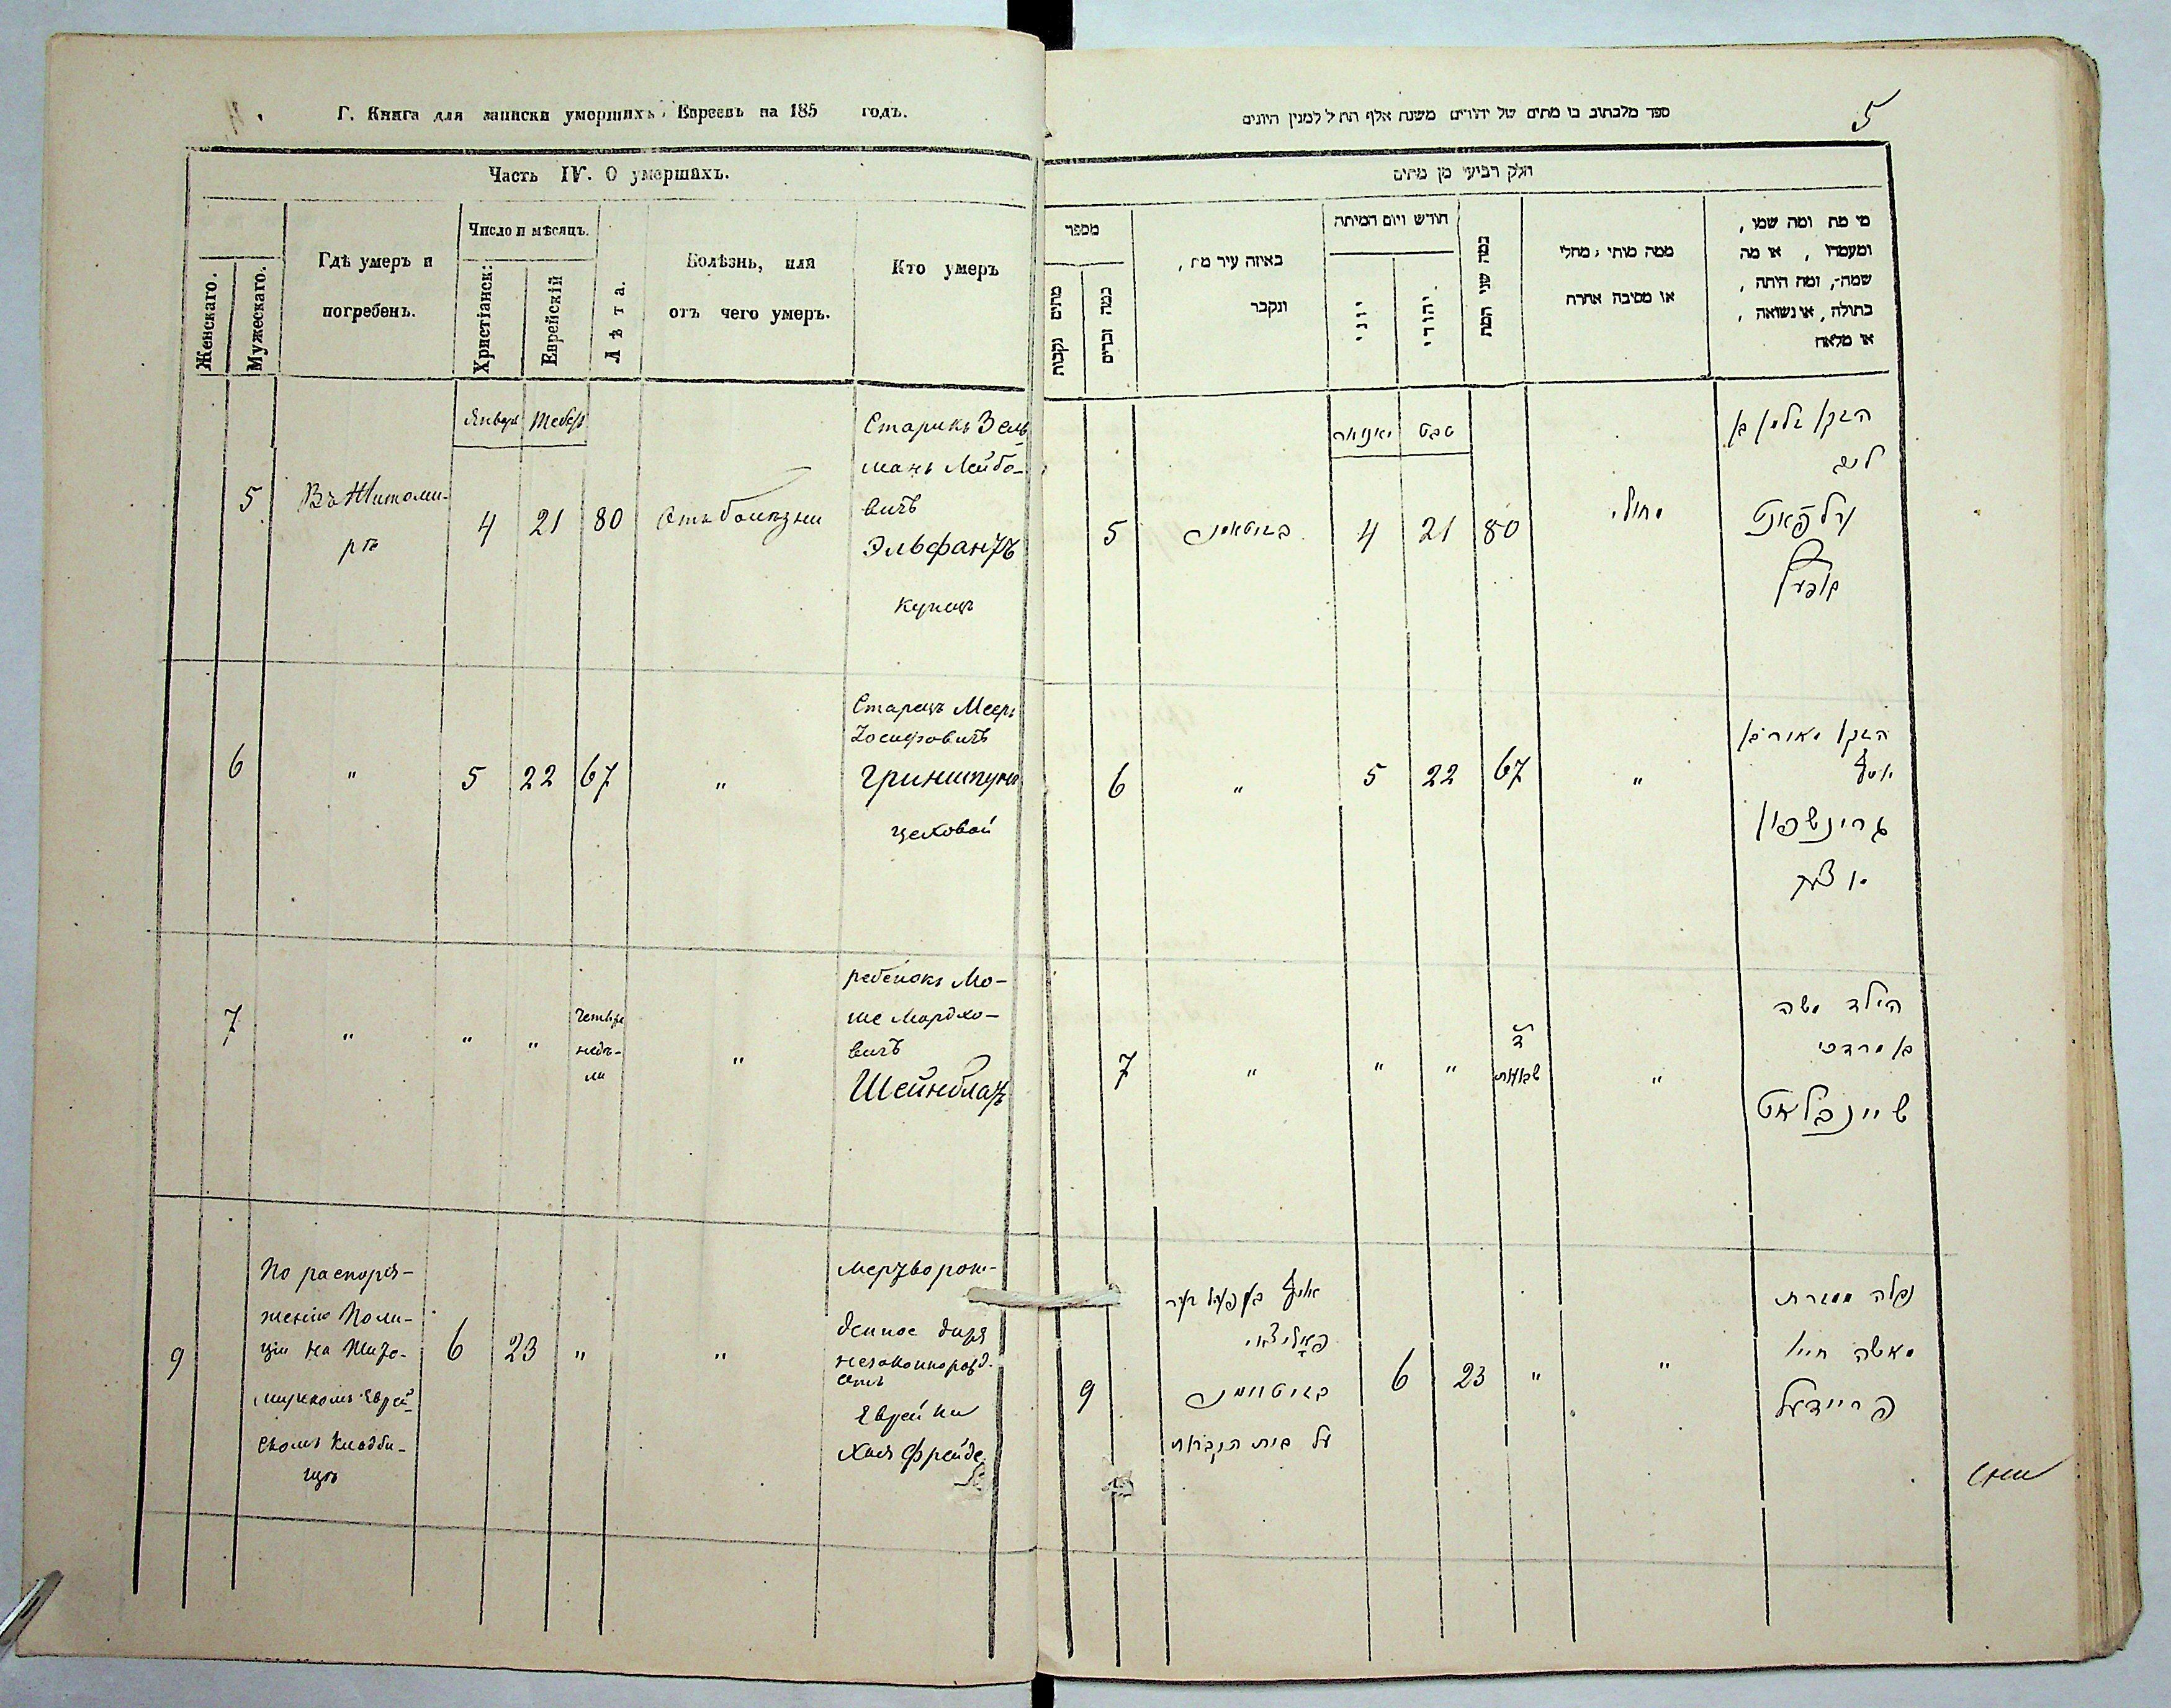 Г. Книга для записки умершихъ Евреевъ на 185 годъ.
Часть IV. О умершихъ.
Женскаго.
Мужескаго.
Гдѣ умеръ и
погребенъ.
Число и мѣсяцъ.
Христіанск:
Еврейскій
Лѣта.
Болѣзнь, или
отъ чего умеръ.
Кто умеръ
Январь
5
Въ Житоми-
рѣ
4
21
80
Отъ болѣзни
Старикъ Зель
манъ Лейбо-
вичъ
Эльфантъ
купецъ
6
"
5
22
67
"
Старецъ Мееръ
Іосифовичъ
Гриншпунъ
цеховой
7
"
"
"
четыре
недѣ-
ли
"
ребенокъ Мо-
ше Мордко-
вичъ
Шейнблатъ
9
По распоря-
женію Поли-
ціи на Жито-
мирскомъ Еврей-
скомъ кладби-
щѣ
6
23
"
"
мертворож-
денное дитя
Еврейки
Хая Фрейде
5
ספר מלכתוב בו מתים של יהודים משנת אלף תתל למנין היונים
חלק רביעי מן מתים
מספר
מתים נקבות
כמה זכרים
באיזה עיר מת,
ונקבר
חודש ויום המיתה
יוני
יהודי
כמה שני המת
ממה מותי, מחלי
או מסיבה אחרת
מי מת ומה שמו,
ומעמדו, או מה
שמה, ומה היתה,
בתולה, או נשואה,
או מלאה
יאנואר
טבת
5
4
21
80
מחולי
הזקן זלמן בן
ליב
עלפאנט
6
"
5
22
67
"
הזקן מאיר בן
יוסף
גרינשפון
7
"
"
"
ד
שבועות
"
הילד משה
בן מרדכי
שיינבלאט
9
פאליצאי
על בית הקברות
6
23
"
"
מאשה חייא
פריידעל